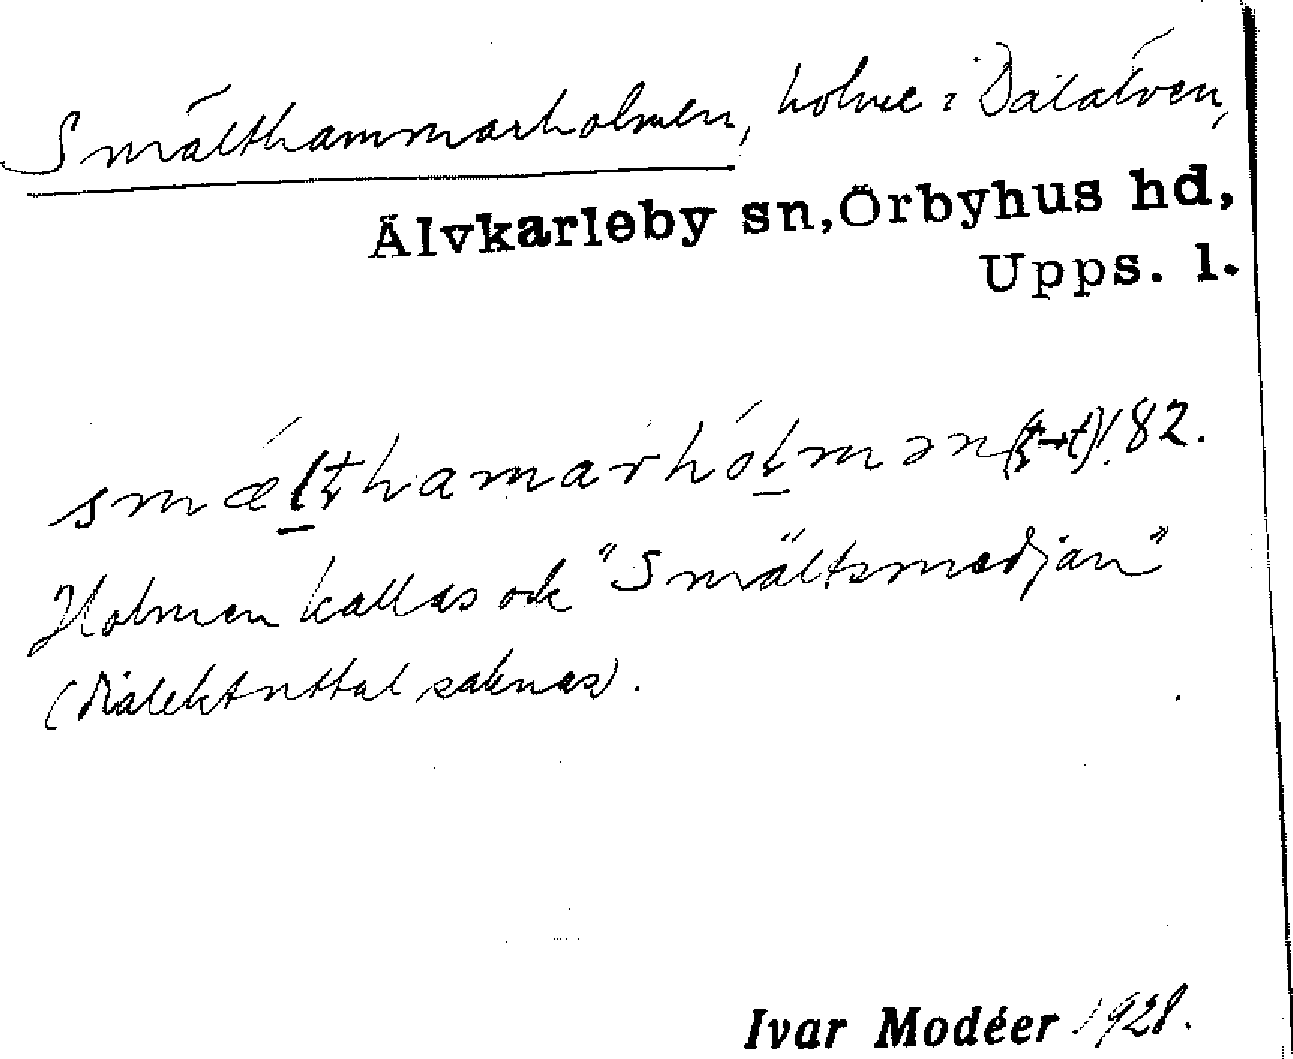 Smälthammarholmen, holme i Dalälven,
Älvkarleby sn, Örbyhus hd,
Upps. l.
Holmen kallas ock "Smältsmedjan"
(Dialektuttal saknas).
Ivar Modéer 1928.